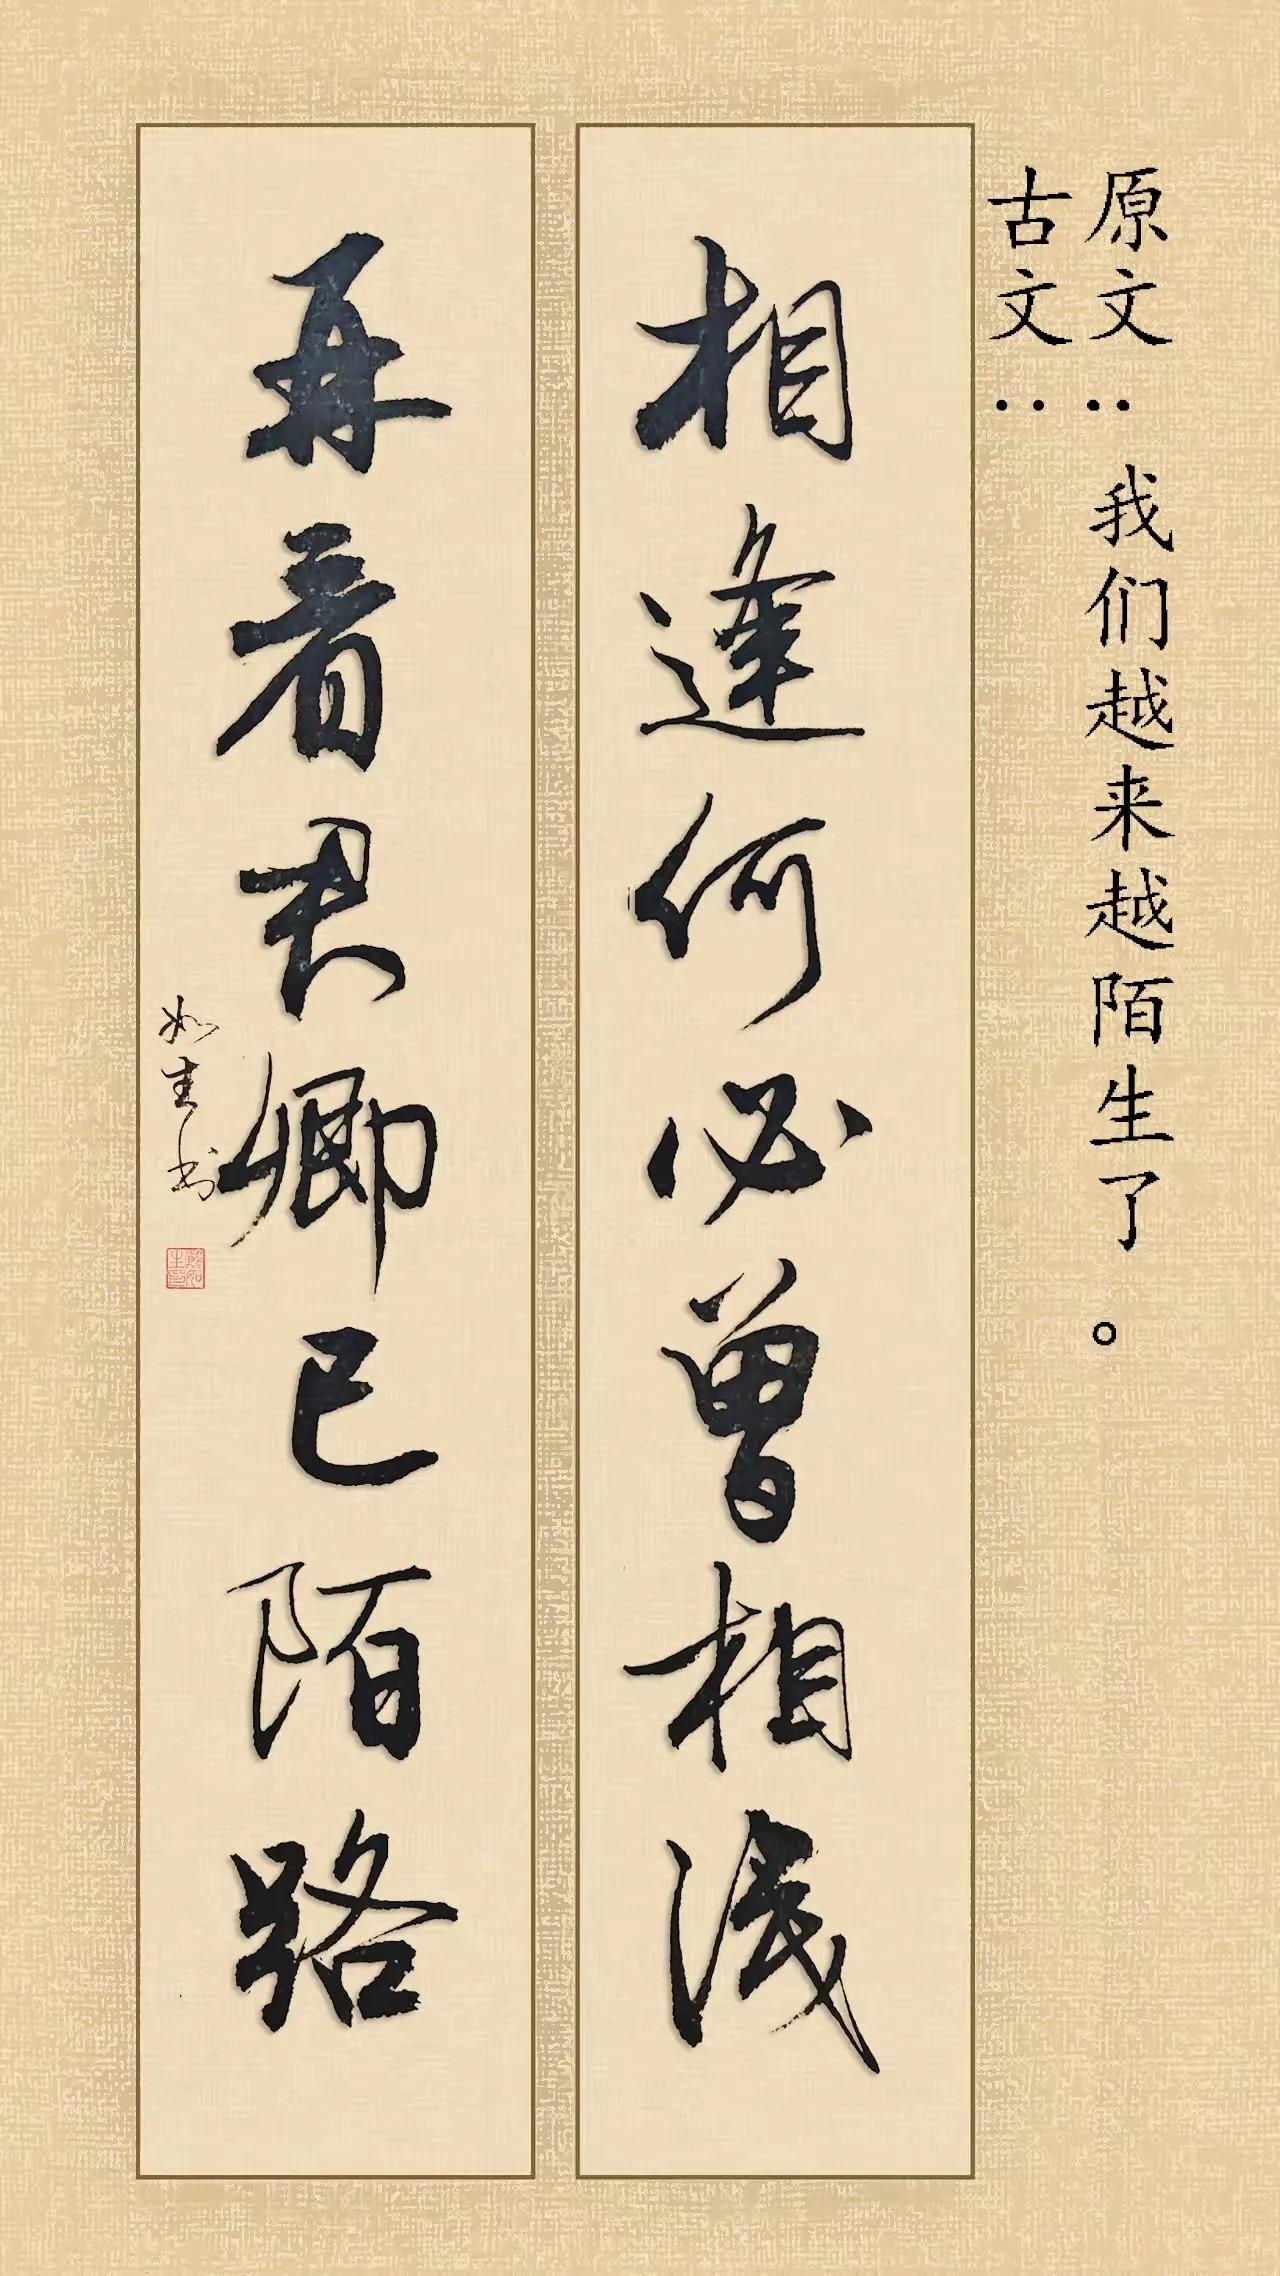 原文：我们越来越陌生了。
古文：
相逢何必曾相識
再看君卿已陌路
如生书